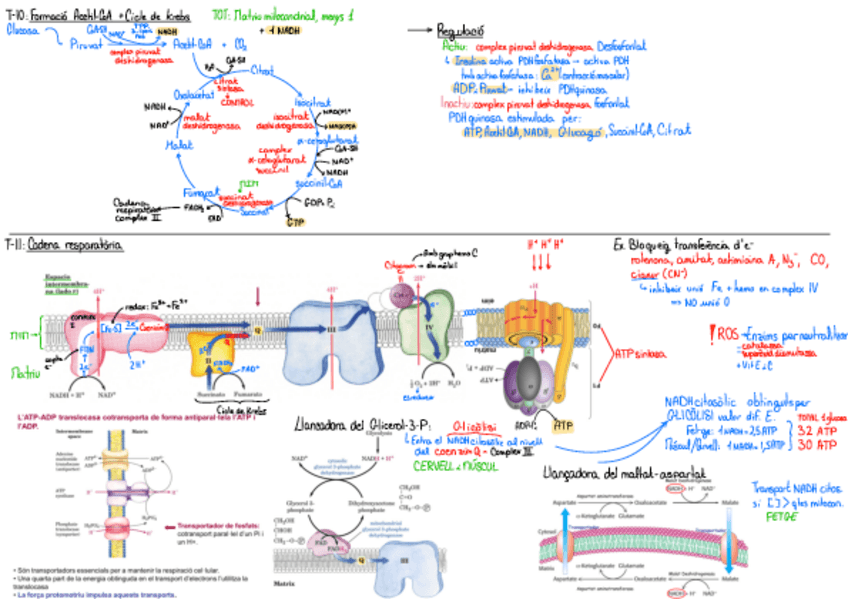 T-10: Formació Acetil-CoA + Cicle de Krebs
TOT: Matriu mitocondrial, menys 1
Glucosa
Piruvat
CoA-SH
NAD+
NADH
complex piruvat deshidrogenasa
Acetil-CoA + CO₂
+ 1 NADH
H₂O
CoA-SH
Citrat
citrat sintasa
CONTROL
Oxalacetat
Isocitrat
isocitrat deshidrogenasa
NADH
NAD+
malat deshidrogenasa
α-cetoglutarat
CoA-SH
NAD+
NADH
complex α-cetoglutarat
Malat
succinil-CoA
MIM
succinat deshidrogenasa
Fumarat
Succinat
GDP+Pi
GTP
FADH₂
FAD
Cadena respiratòria complex II
Regulació
Activa: complex piruvat deshidrogenasa Desfosfatat
Insulina activa PDH fosfatasa → activa PDH
també activa fosfatasa: Ca²⁺ (contracció muscular)
ADP, Piruvat → inhibeix PDH quinasa
Inactiu: complex piruvat deshidrogenasa fosforilat
PDH quinasa estimulada per:
ATP, Acetil-CoA, NADH, Glucagó, Succinil-CoA, Citrat
T-11: Cadena respiratòria
Espacio intermembrana
redox: Fe³⁺→Fe²⁺
[Fe-S]
2e⁻
2H⁺
FMN
MIM
Matriu
NADH + H⁺
NAD⁺
Q
II
FAD
Succinato
Fumarato
Cicle de Krebs
III
Cyt c
IV
½ O₂ + 2H⁺
H₂O
H⁺ H⁺ H⁺
ADP+Pi
ATP
ATP sintasa
Ex. Bloqueig transferència d'e⁻
rotenona, amital, antimicina A, N₃⁻, CO,
cianur (CN⁻)
inhibeix unió Fe + hemo en complex IV
⇒ NO unió O
! ROS → Enzims per neutralitzar
catalasa
superòxid dismutasa
+ Vit E i C
L'ATP-ADP translocasa cotransporta de forma antiparal·lela l'ATP i l'ADP.
Intermembrane space
Matrix
Adenine nucleotide translocase (antiporter)
ATP synthase
Phosphate translocase (symporter)
Transportador de fosfats:
cotransport paral·lel d'un Pi i un H+.
• Són transportadors essencials per a mantenir la respiració cel·lular.
• Una quarta part de la energia obtinguda en el transport d'electrons l'utilitza la translocasa
• La força protomotriu impulsa aquests transports.
Llançadora del Glicerol-3-P:
Glicòlisi
Entra el NADH citosòlic al nivell
del coenzim Q → Complex III
CERVELL i MÚSCUL
Glycolysis
NAD⁺
NADH + H⁺
cytosolic glycerol 3-phosphate dehydrogenase
Glycerol 3-phosphate
Dihydroxyacetone phosphate
mitochondrial glycerol 3-phosphate dehydrogenase
FAD
FADH₂
Q
III
Matrix
NADH citosòlic obtingut per
GLICÒLISI valor dif. E.
Fetge: 1 NADH = 2,5 ATP
Múscul/Cervell: 1 NADH = 1,5 ATP
TOTAL 1 glucosa
32 ATP
30 ATP
Llançadora del maltat-aspartat
Transport NADH citos.
si [ ] > q las mitocon.
FETGE
NADH + H⁺
NAD⁺
Aspartato
Oxaloacetato
Malato
α-Ketoglutarato
Glutamato
Citosol
Matriz
α-Ketoglutarato
Glutamato
Aspartato
Oxaloacetato
Malato
NADH + H⁺
NAD⁺